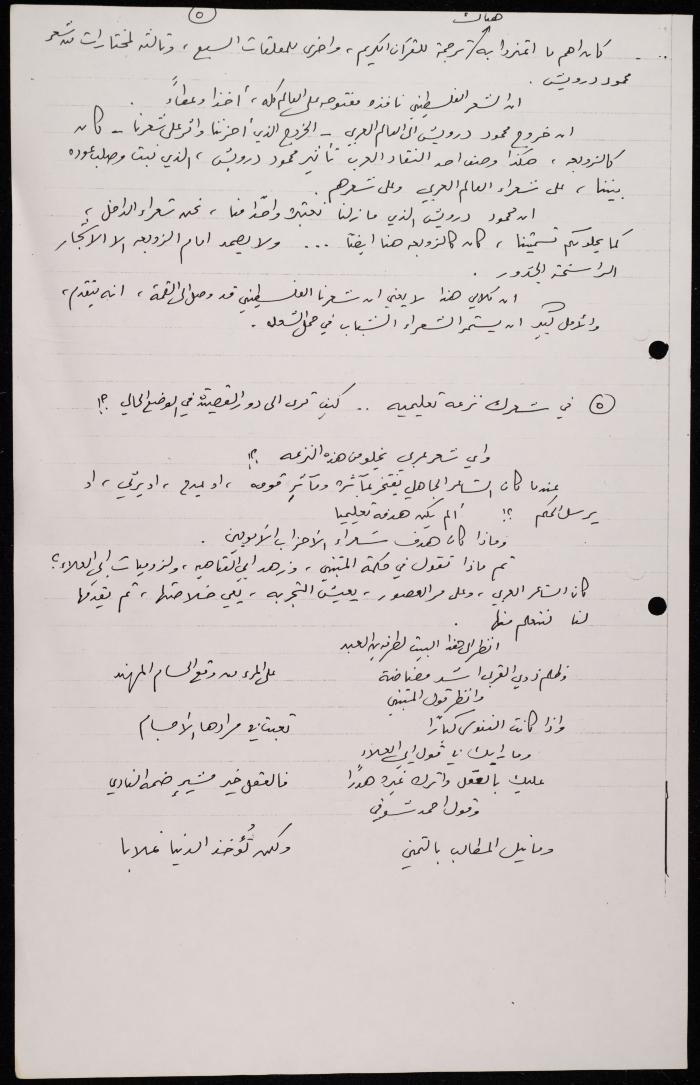 ٥
هناك
كان اهم ما اعتزوا به ترجمة للقرآن الكريم، واخرى للمعلقات السبع، وثالثة لمختارات من شعر
محمود درويش.
ان الشعر الفلسطيني نافذه مفتوحه على العالم كله، أخذاً وعطاءً.
ان خروج محمود درويش الى العالم العربي - الخروج الذي أحزننا واثر على شعرنا - كان
كالزوبعه، هكذا وصف احد النقاد العرب تأثير محمود درويش، الذي نبت وصلب عوده
بيننا، على شعراء العالم العربي وعلى شعرهم.
ان محمود درويش الذي ما زلنا نعتبره واحداً منا، نحن شعراء الداخل،
كما يحلو لكم تسميتنا، كان كالزوبعه هنا ايضاً ... ولا يصمد امام الزوبعه الا الأشجار
الراسخة الجذور.
ان كلامي هذا لا يعني ان شعرنا الفلسطيني قد وصل الى القمة، انه يتقدم،
والأمل كبير ان يستمر الشعراء الشباب في حمل الشعله.
٥ في شعرك نزعه تعليميه .. كيف ترى الى دور القصيدة في الوضع الحالي ؟!
واي شعر عربي يخلو من هذه النزعه ؟!
عندما كان الشاعر الجاهلي يفتخر بمآثره ومآثر قومه، او يمدح، او يرثي، او
يرسل الحكم ؟! ألم يكن هدفه تعليمياً
وماذا كان هدف شعراء الأحزاب الأمويين.
ثم ماذا تقول في حكمة المتنبي، وزهد ابي العتاهيه، ولزوميات ابي العلاء؟
كان الشاعر العربي، وعلى مر العصور، يعيش التجربه، يعي خلاصتها، ثم يقدمها
لنا لنتعلم منها.
انظر الى هذا البيت لطرفه بن العبد
وظلم ذوي القربى اشد مضاضة على المرء من وقع الحسام المهند
وانظر قول المتنبي
واذا كانت النفوس كباراً تعبت في مرادها الأجسام
وما رأيك في قول ابي العلاء
عليك بالعقل واترك غيره هدراً فالعقل خير مشيرٍ ضمه النادي
وقول احمد شوقي
وما نيل المطالب بالتمني ولكن تُؤخذ الدنيا غلابا